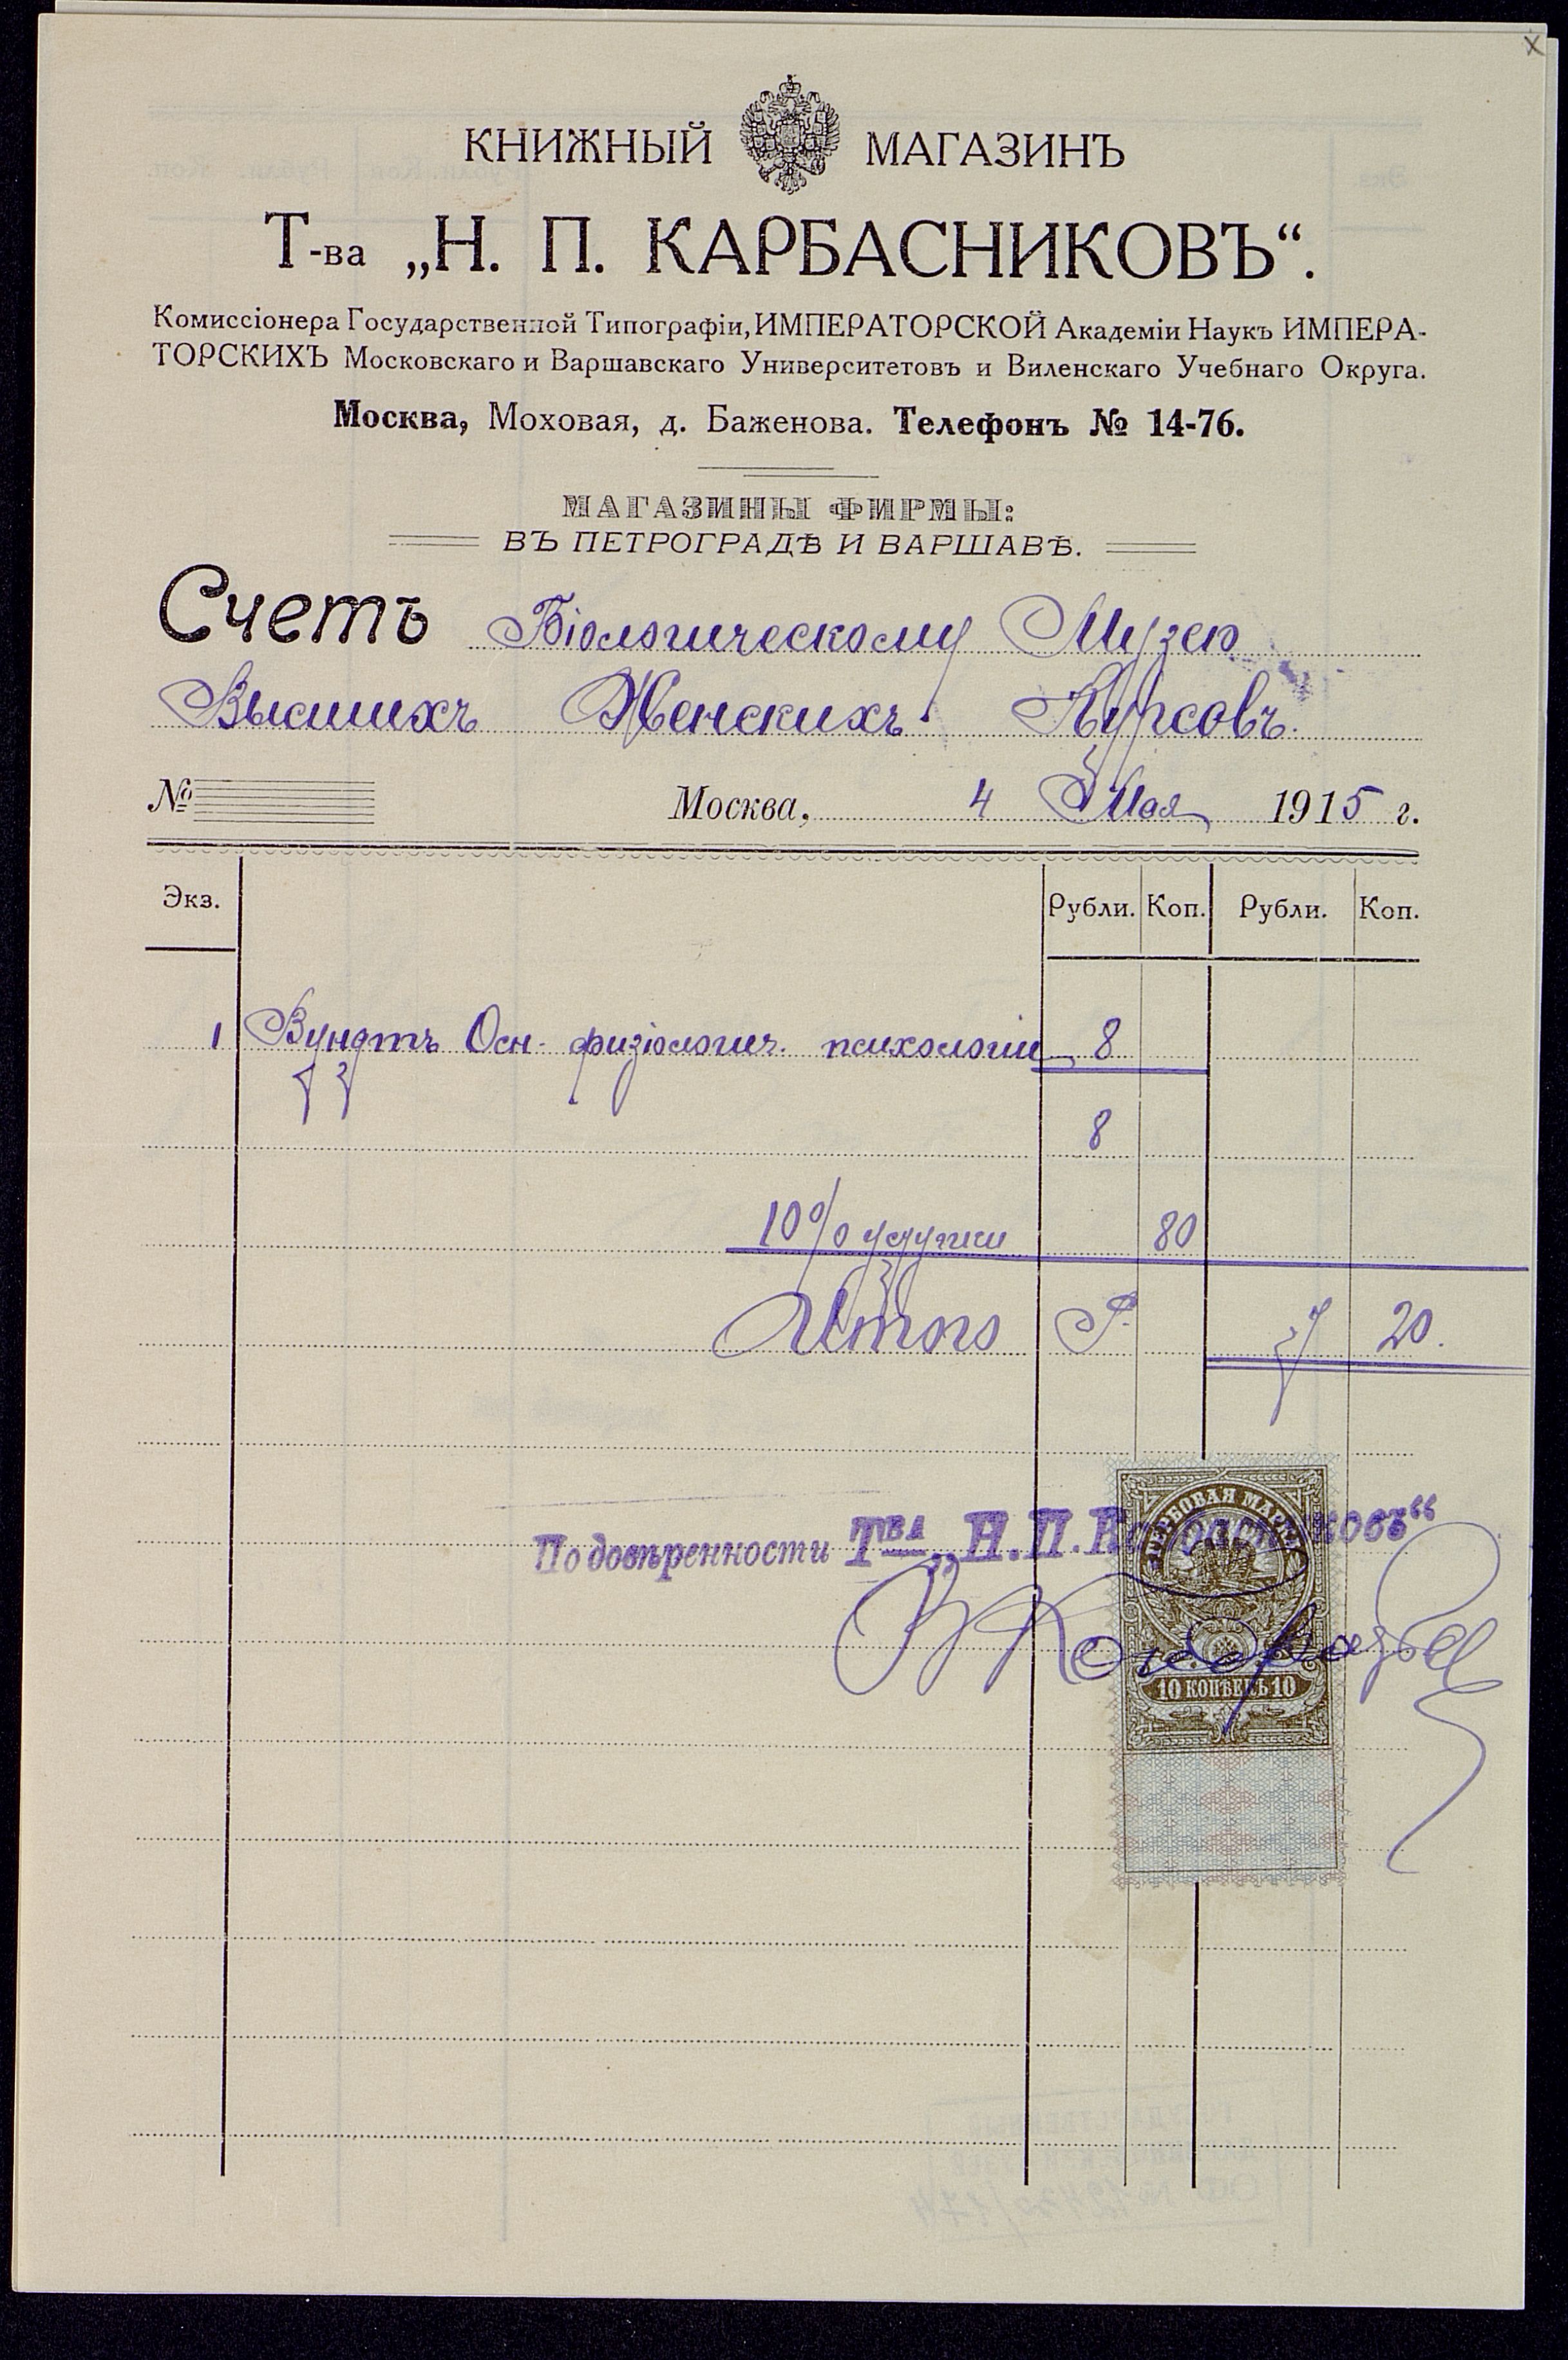 КНИЖНЫЙ МАГАЗИНЪ
Т-ва „Н. П. КАРБАСНИКОВЪ“.
Комиссіонера Государственной Типографіи, ИМПЕРАТОРСКОЙ Академіи Наукъ ИМПЕРА-
ТОРСКИХЪ Московскаго и Варшавскаго Университетовъ и Виленскаго Учебнаго Округа.
Москва, Моховая, д. Баженова. Телефонъ № 14-76.
МАГАЗИНЫ ФИРМЫ:
ВЪ ПЕТРОГРАДѢ И ВАРШАВѢ.
Счетъ Біологическому Музею
Высшихъ Женскихъ Курсовъ.
№ Москва, 4 Мая 1915 г.
Экз. Рубли. Коп. Рубли. Коп.
1 Вундтъ Осн. физіологич. психологіи 8
8
10% уступки 80
Итого Р. 7 20.
По довѣренности Т-ва „Н. П. Карбасниковъ“
ГЕРБОВАЯ МАРКА
10 КОПѢЕКЪ 10